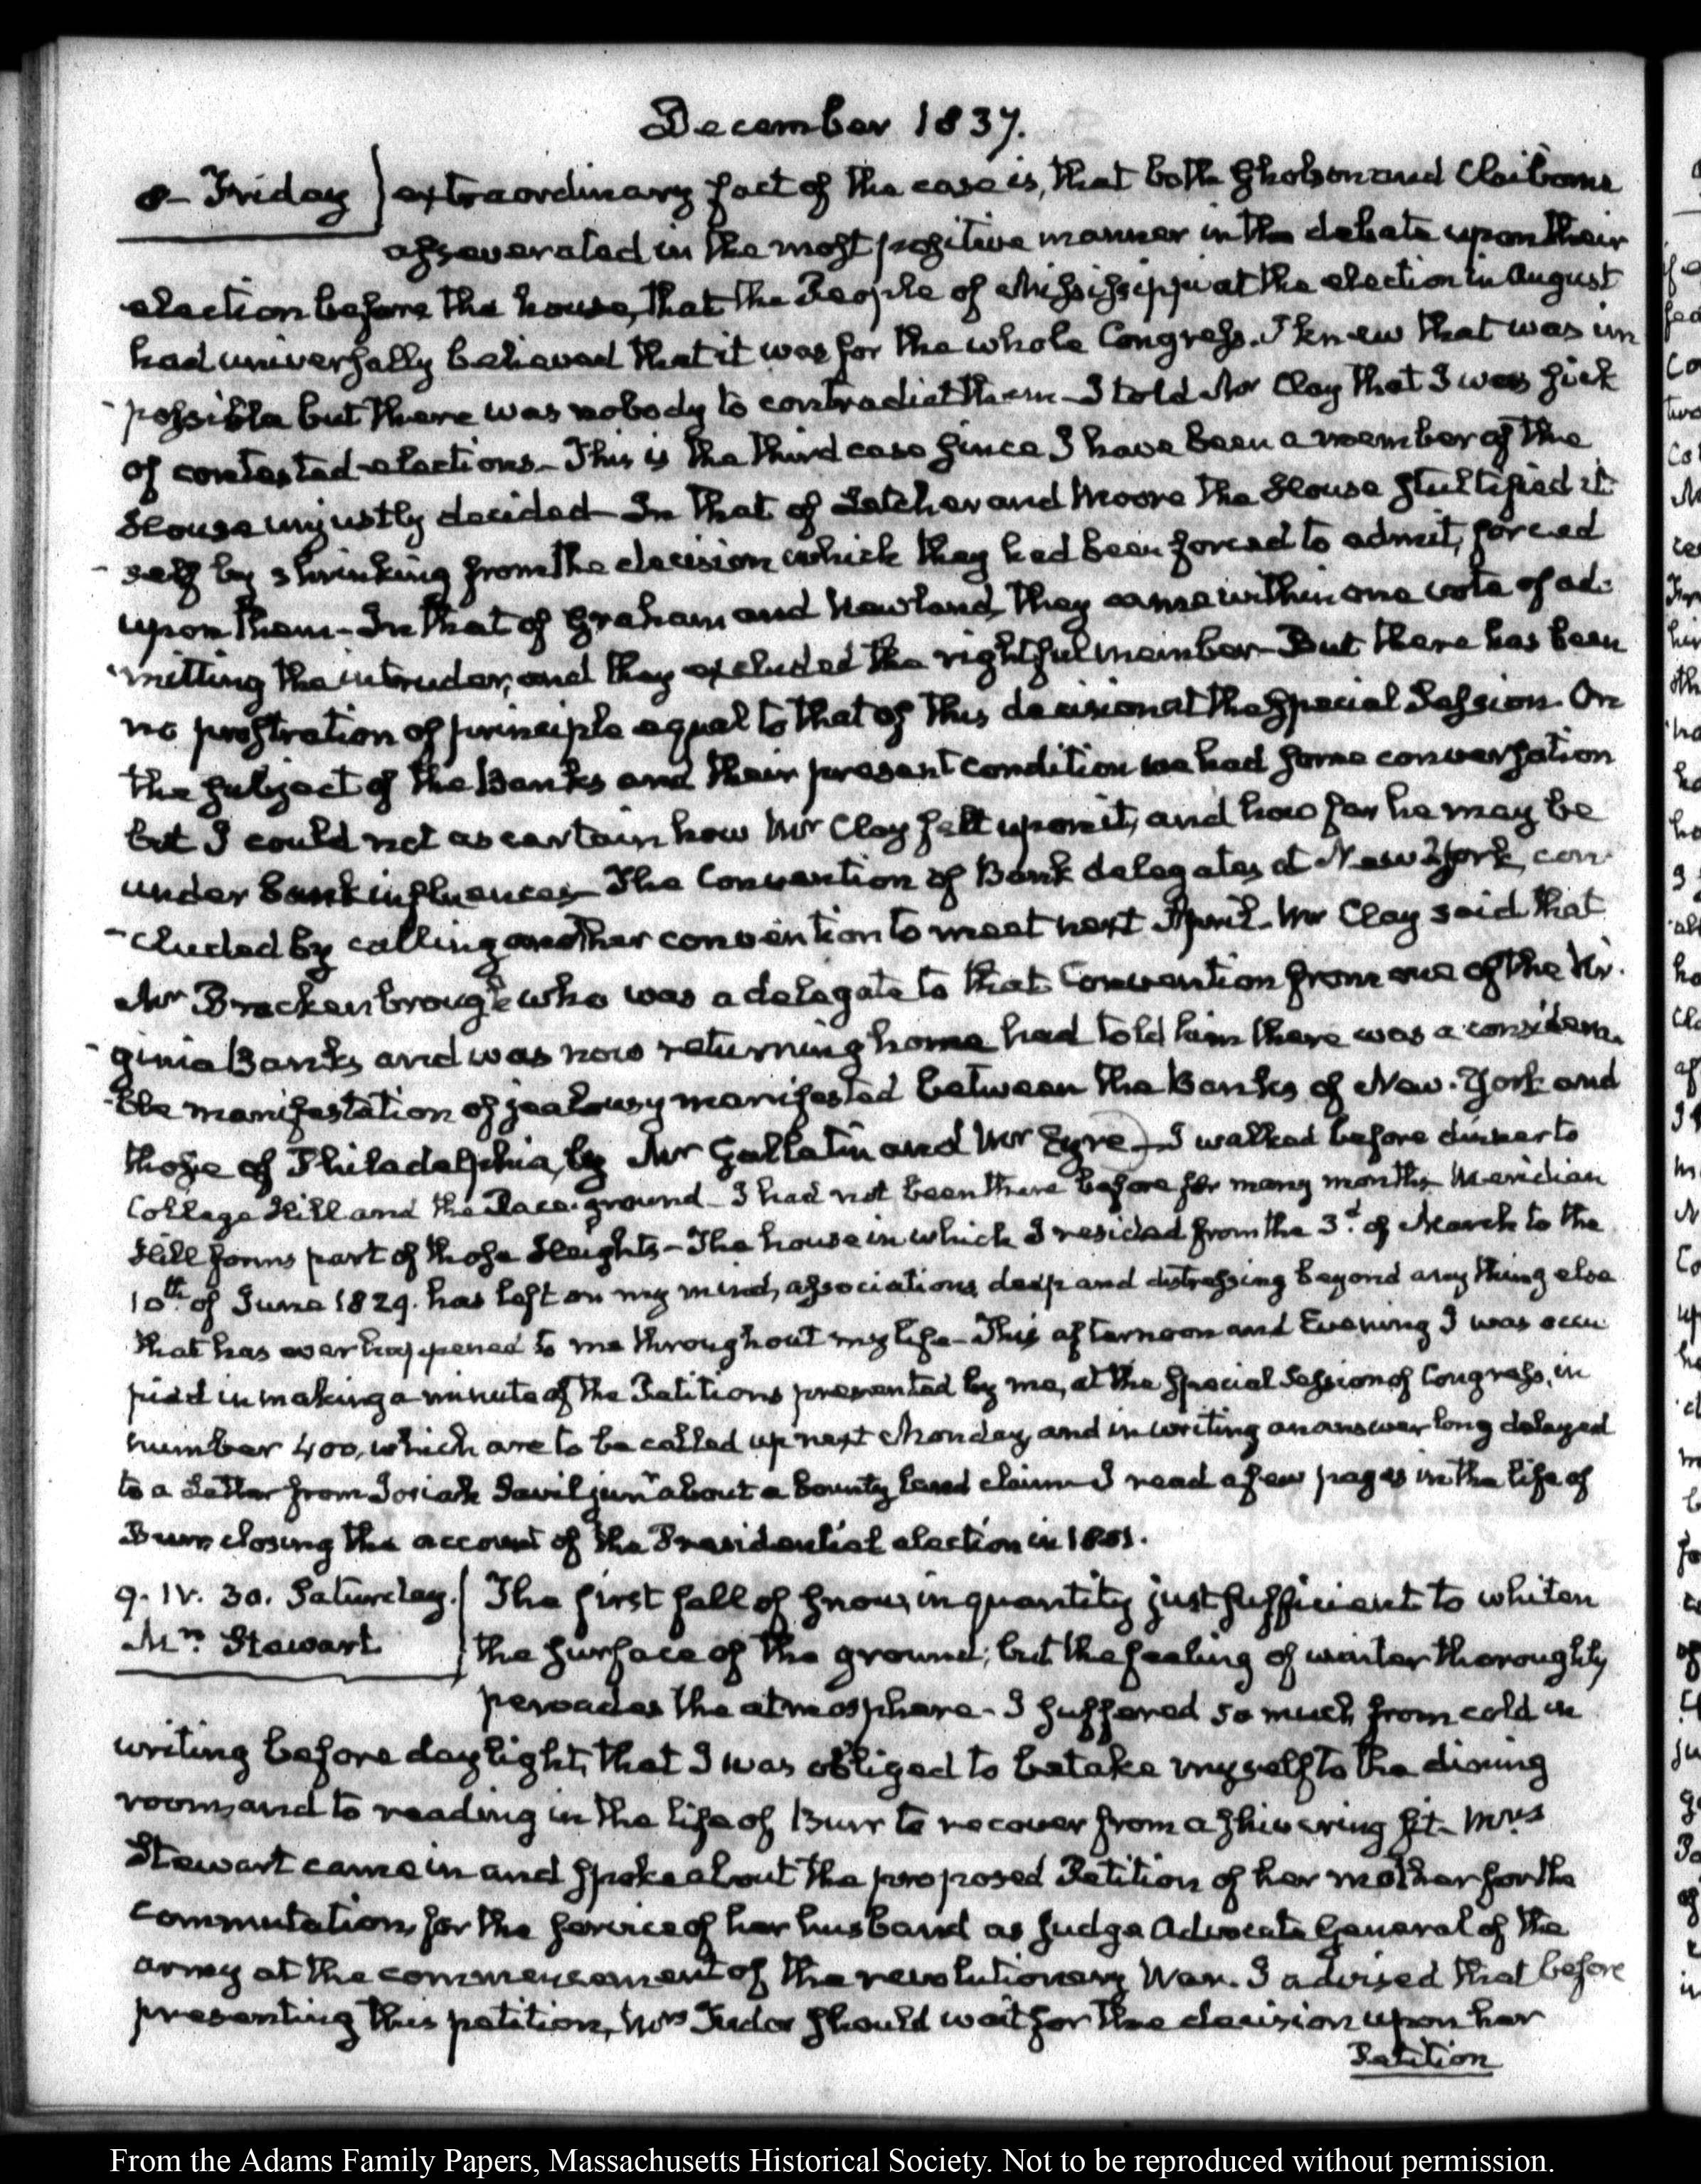 December 1837.
8- Friday
extraordinary fact of the case is, that both Gholson and Claiborne
asseverated in the most positive manner in the debate upon their
election before the house, that the People of Mississippi at the election in August
had universally believed that it was for the whole Congress. I knew that was im
-possible but there was nobody to contradict them- I told Mr Clay that I was sick
of contested elections- This is the third case since I have been a member of the
House unjustly decided- In that of Letcher and Moore the House stultified it
-self by shrinking from the decision which they had been forced to admit, forced
upon them- In that of Graham and Newland, they came within one vote of ad-
-mitting the intruder, and they excluded the rightful member- But there has been
no prostration of principle equal to that of this decision at the Special Session. On
the subject of the Banks and their present condition we had some conversation
but I could not ascertain how Mr Clay felt upon it, and how far he may be
under bank influences- The Convention of Bank delegates at New York, con
-cluded by calling another convention to meet next April- Mr Clay said that
Mr Brockenbrough who was a delegate to that Convention from one of the Vir-
-ginia Banks and was now returning home had told him there was a considera-
-ble manifestation of jealousy manifested between the Banks of New-York and
those of Philadelphia, by Mr Gallatin and Mr Eyre- I walked before dinner to
College Hill and the Race-ground- I had not been there before for many months- Meridian
Hill forms part of those Heights- The house in which I resided from the 3d. of March to the
10th. of June 1829. has left on my mind, associations deep and distressing beyond any thing else
that has ever happened to me throughout my life- This afternoon and Evening I was occu
pied in making a minute of the Petitions presented by me, at the Special Session of Congress, in
number 400, which are to be called up next Monday, and in writing an answer long delayed
to a Letter from Josiah Savil junr about a bounty land claim- I read a few pages in the life of
Burr closing the account of the Presidential election in 1801.
9. IV. 30. Saturday.
Mrs. Stewart
The first fall of snow, in quantity just sufficient to whiten
the surface of the ground; but the feeling of winter thoroughly
pervades the atmosphere- I suffered so much from cold in
writing before daylight, that I was obliged to betake myself to the dining
room, and to reading in the life of Burr to recover from a shivering fit- Mrs
Stewart came in and spoke about the proposed Petition of her mother for the
commutation, for the service of her husband as Judge Advocate General of the
army at the commencement of the revolutionary War. I advised that before
presenting this petition, Mrs Tudor should wait for the decision upon her
Petition
From the Adams Family Papers, Massachusetts Historical Society. Not to be reproduced without permission.